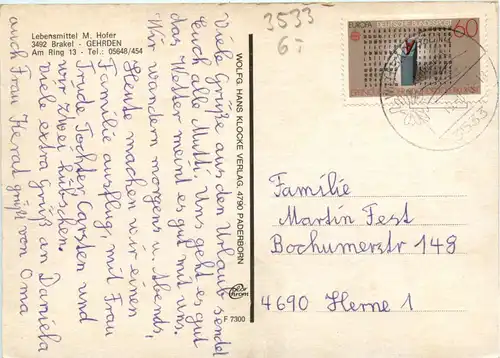 Lebensmittel M. Hofer
3492 Brakel - GEHRDEN
Am Ring 13 - Tel.: 05648/454
Viele Grüße aus den Urlaub sendet
Euch alle Mutti. Uns geht es gut
das Wetter meint es gut mit uns.
Wir wandern morgens u. Abends,
Heute machen wir einen
Familie ausflug, mit Frau
Trude Tochter Carsten und
wir zwei hübschen.
viele extra Grüß an Daniela
von Oma
auch Frau Herat grüßt
WOLFG. HANS KLOCKE VERLAG, 4790 PADERBORN
F 7300
3533
6:-
EUROPA DEUTSCHE BUNDESPOST 60
3533
Familie
Martin Fest
Bochumerstr 148
4690 Herne 1